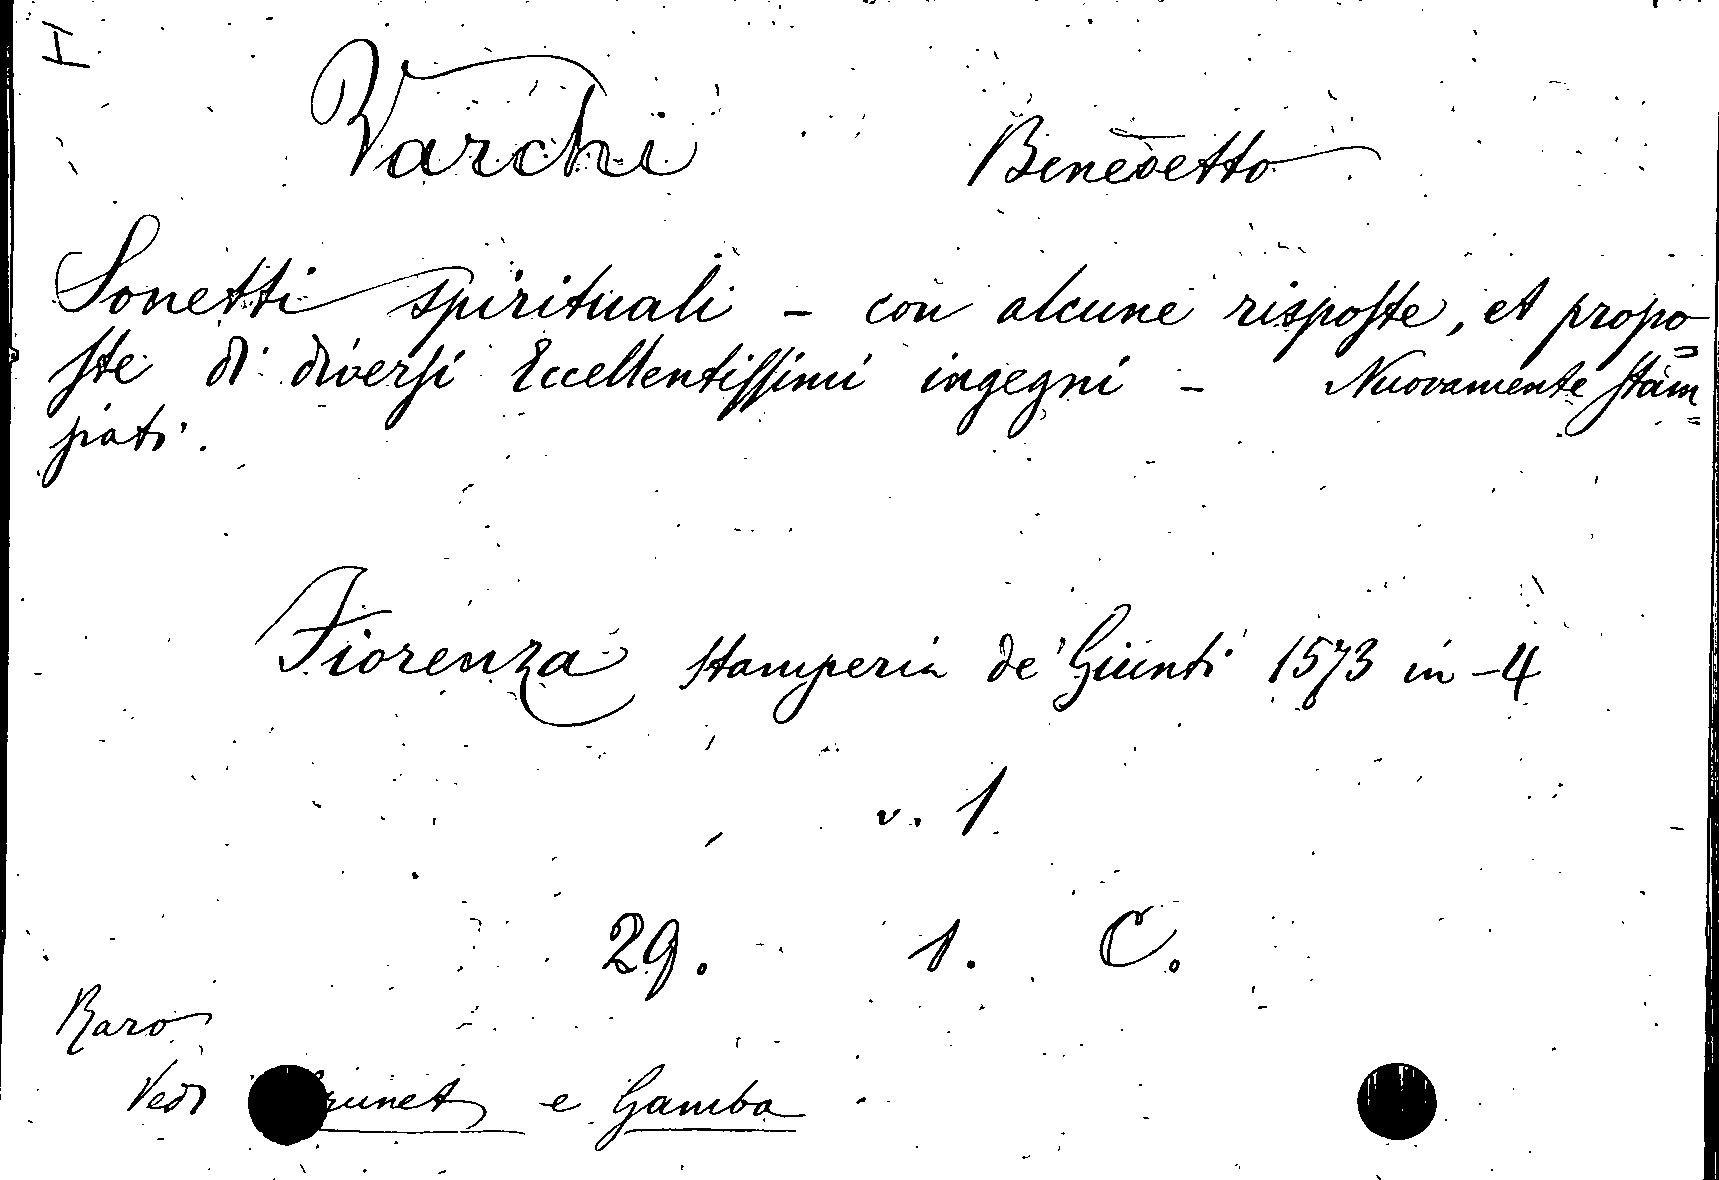 I
Varchi Benedetto
Sonetti spirituali - con alcune risposte, et propo=
ste di diversi Eccellentissimi ingegni - Nuovamente stam=
pati.
Fiorenza stamperia de' Giunti 1573 in-4
v. 1
29. 1. C.
Raro
Vedi runet e Gamba